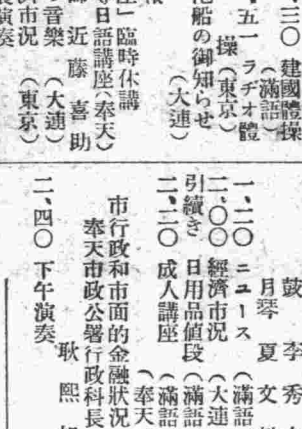 三〇 建國體操
(滿語)
五一 ラヂオ體
操(東京)
船の御知らせ
(大連)
」臨時休講
日語講座(奉天)
近藤喜助
音樂(大連)
市況(東京)
演奏
鼓 李秀
月琴 夏文
一、二〇 ニュース(滿語
二、〇〇 經濟市況(大連
引續き 日用品値段(滿語
二、二〇 成人講座(滿語
(奉天
市行政和市面的金融狀況
奉天市政公署行政科長
二、四〇 下午演奏
耿熙